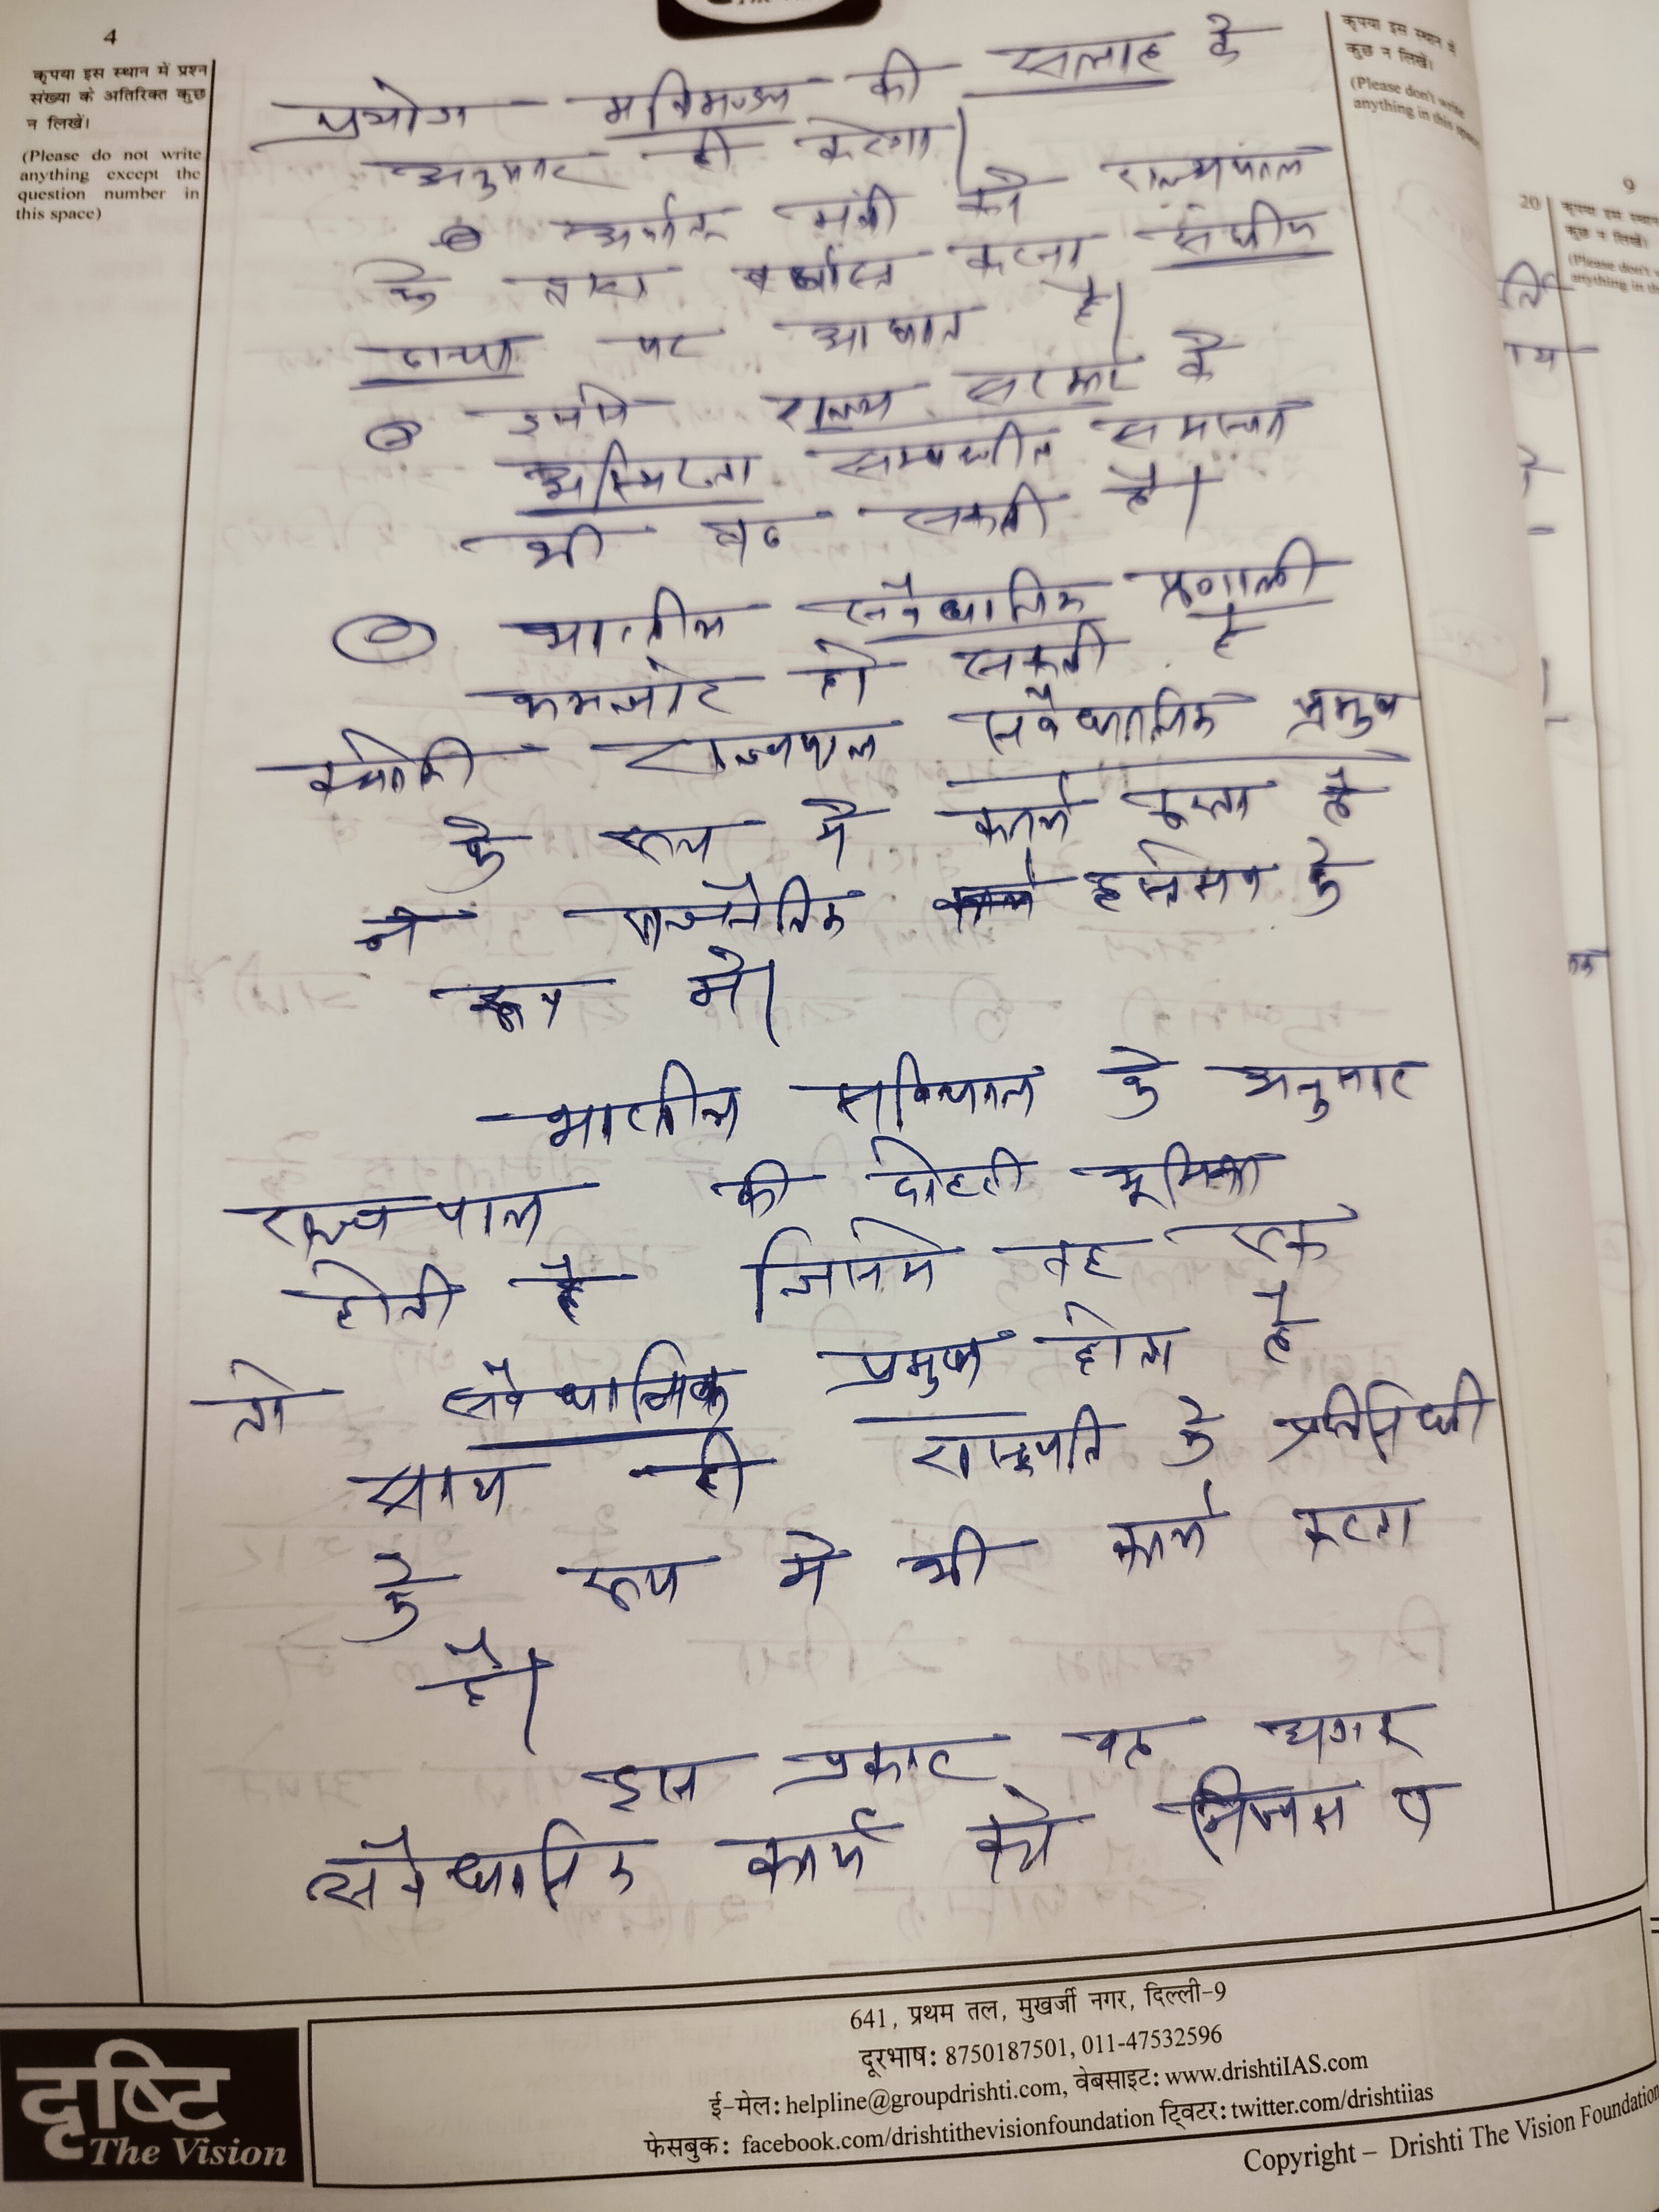 4
कृपया इस स्थान में प्रश्न
संख्या के अतिरिक्त कुछ
न लिखें।
(Please do not write
anything except the
question number in
this space)
कृपया इस स्थान में
कुछ न लिखें।
(Please don't write
anything in this space
प्रयोग मंत्रिमण्डल की सलाह के
अनुसार ही करेगा।
मंत्री को राज्यपाल
के द्वारा बर्खास्त करना संघीय
ढाचा पर आघात है।
इससे राज्य सरकार के
अस्थिरता सम्बन्धीत समस्या
भी बढ़ सकती है।
भारतीय संवैधानिक प्रणाली
कमजोर हो सकती है
क्योंकी राज्यपाल संवैधानिक प्रमुख
के रूप में कार्य करता है
न राजनैतिक हस्तक्षेप के
रूप में।
भारतीय संविधान के अनुसार
राज्यपाल की दोहरी भूमिका
होती है जिसमे वह एक
तो संवैधानिक प्रमुख होता है
साथ ही राष्ट्रपति के प्रतिनिधी
के रूप में भी कार्य करता
है।
इस प्रकार वह अगर
संवैधानिक कार्य को
9
20
641, प्रथम तल, मुखर्जी नगर, दिल्ली-9
दूरभाष: 8750187501, 011-47532596
ई-मेल: helpline@groupdrishti.com, वेबसाइट: www.drishtiIAS.com
फेसबुक: facebook.com/drishtithevisionfoundation ट्विटर: twitter.com/drishtiias
Copyright – Drishti The Vision Foundation
दृष्टि
The Vision